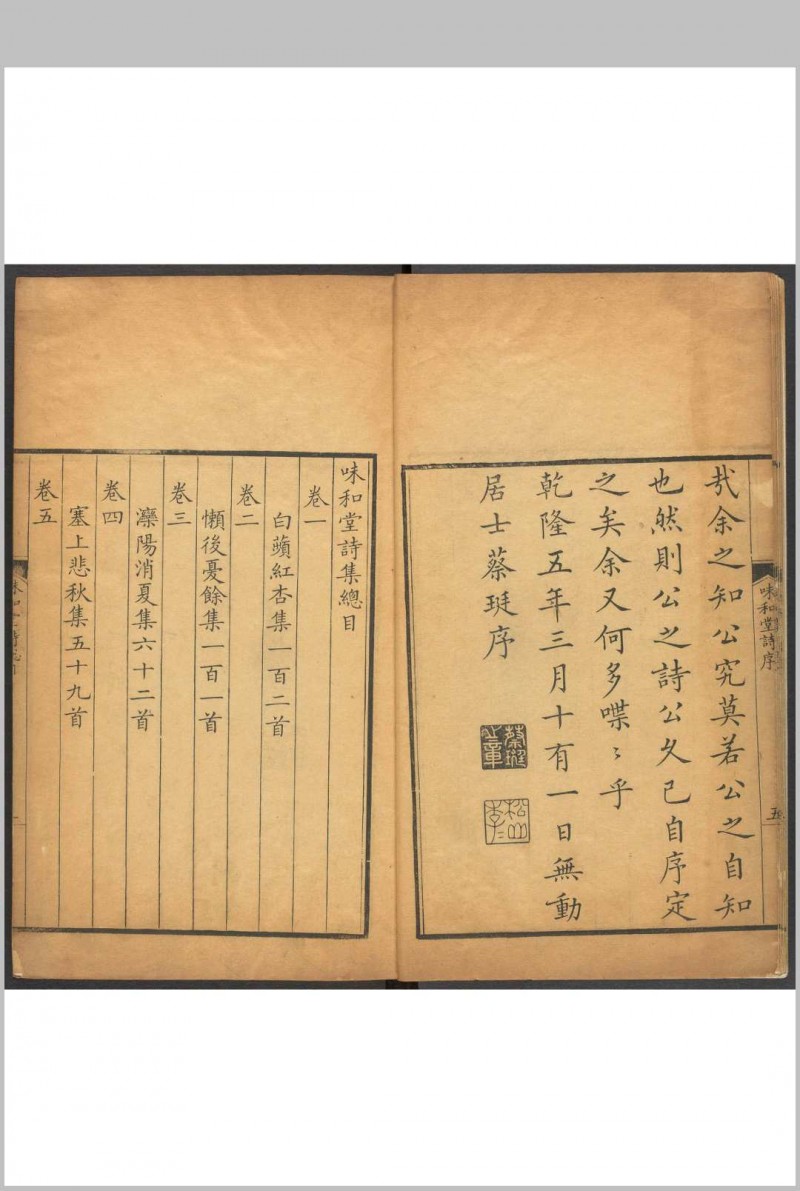 味和堂詩序
五
哉余之知公究莫若公之自知
也然則公之詩公久已自序定
之矣余又何多喋〻乎
乾隆五年三月十有一日無動
居士蔡珽序
蔡珽之章
味和堂詩集總目
卷一
白蘋紅杏集一百二首
卷二
懶後憂餘集一百一首
卷三
灤陽消夏集六十二首
卷四
塞上悲秋集五十九首
卷五